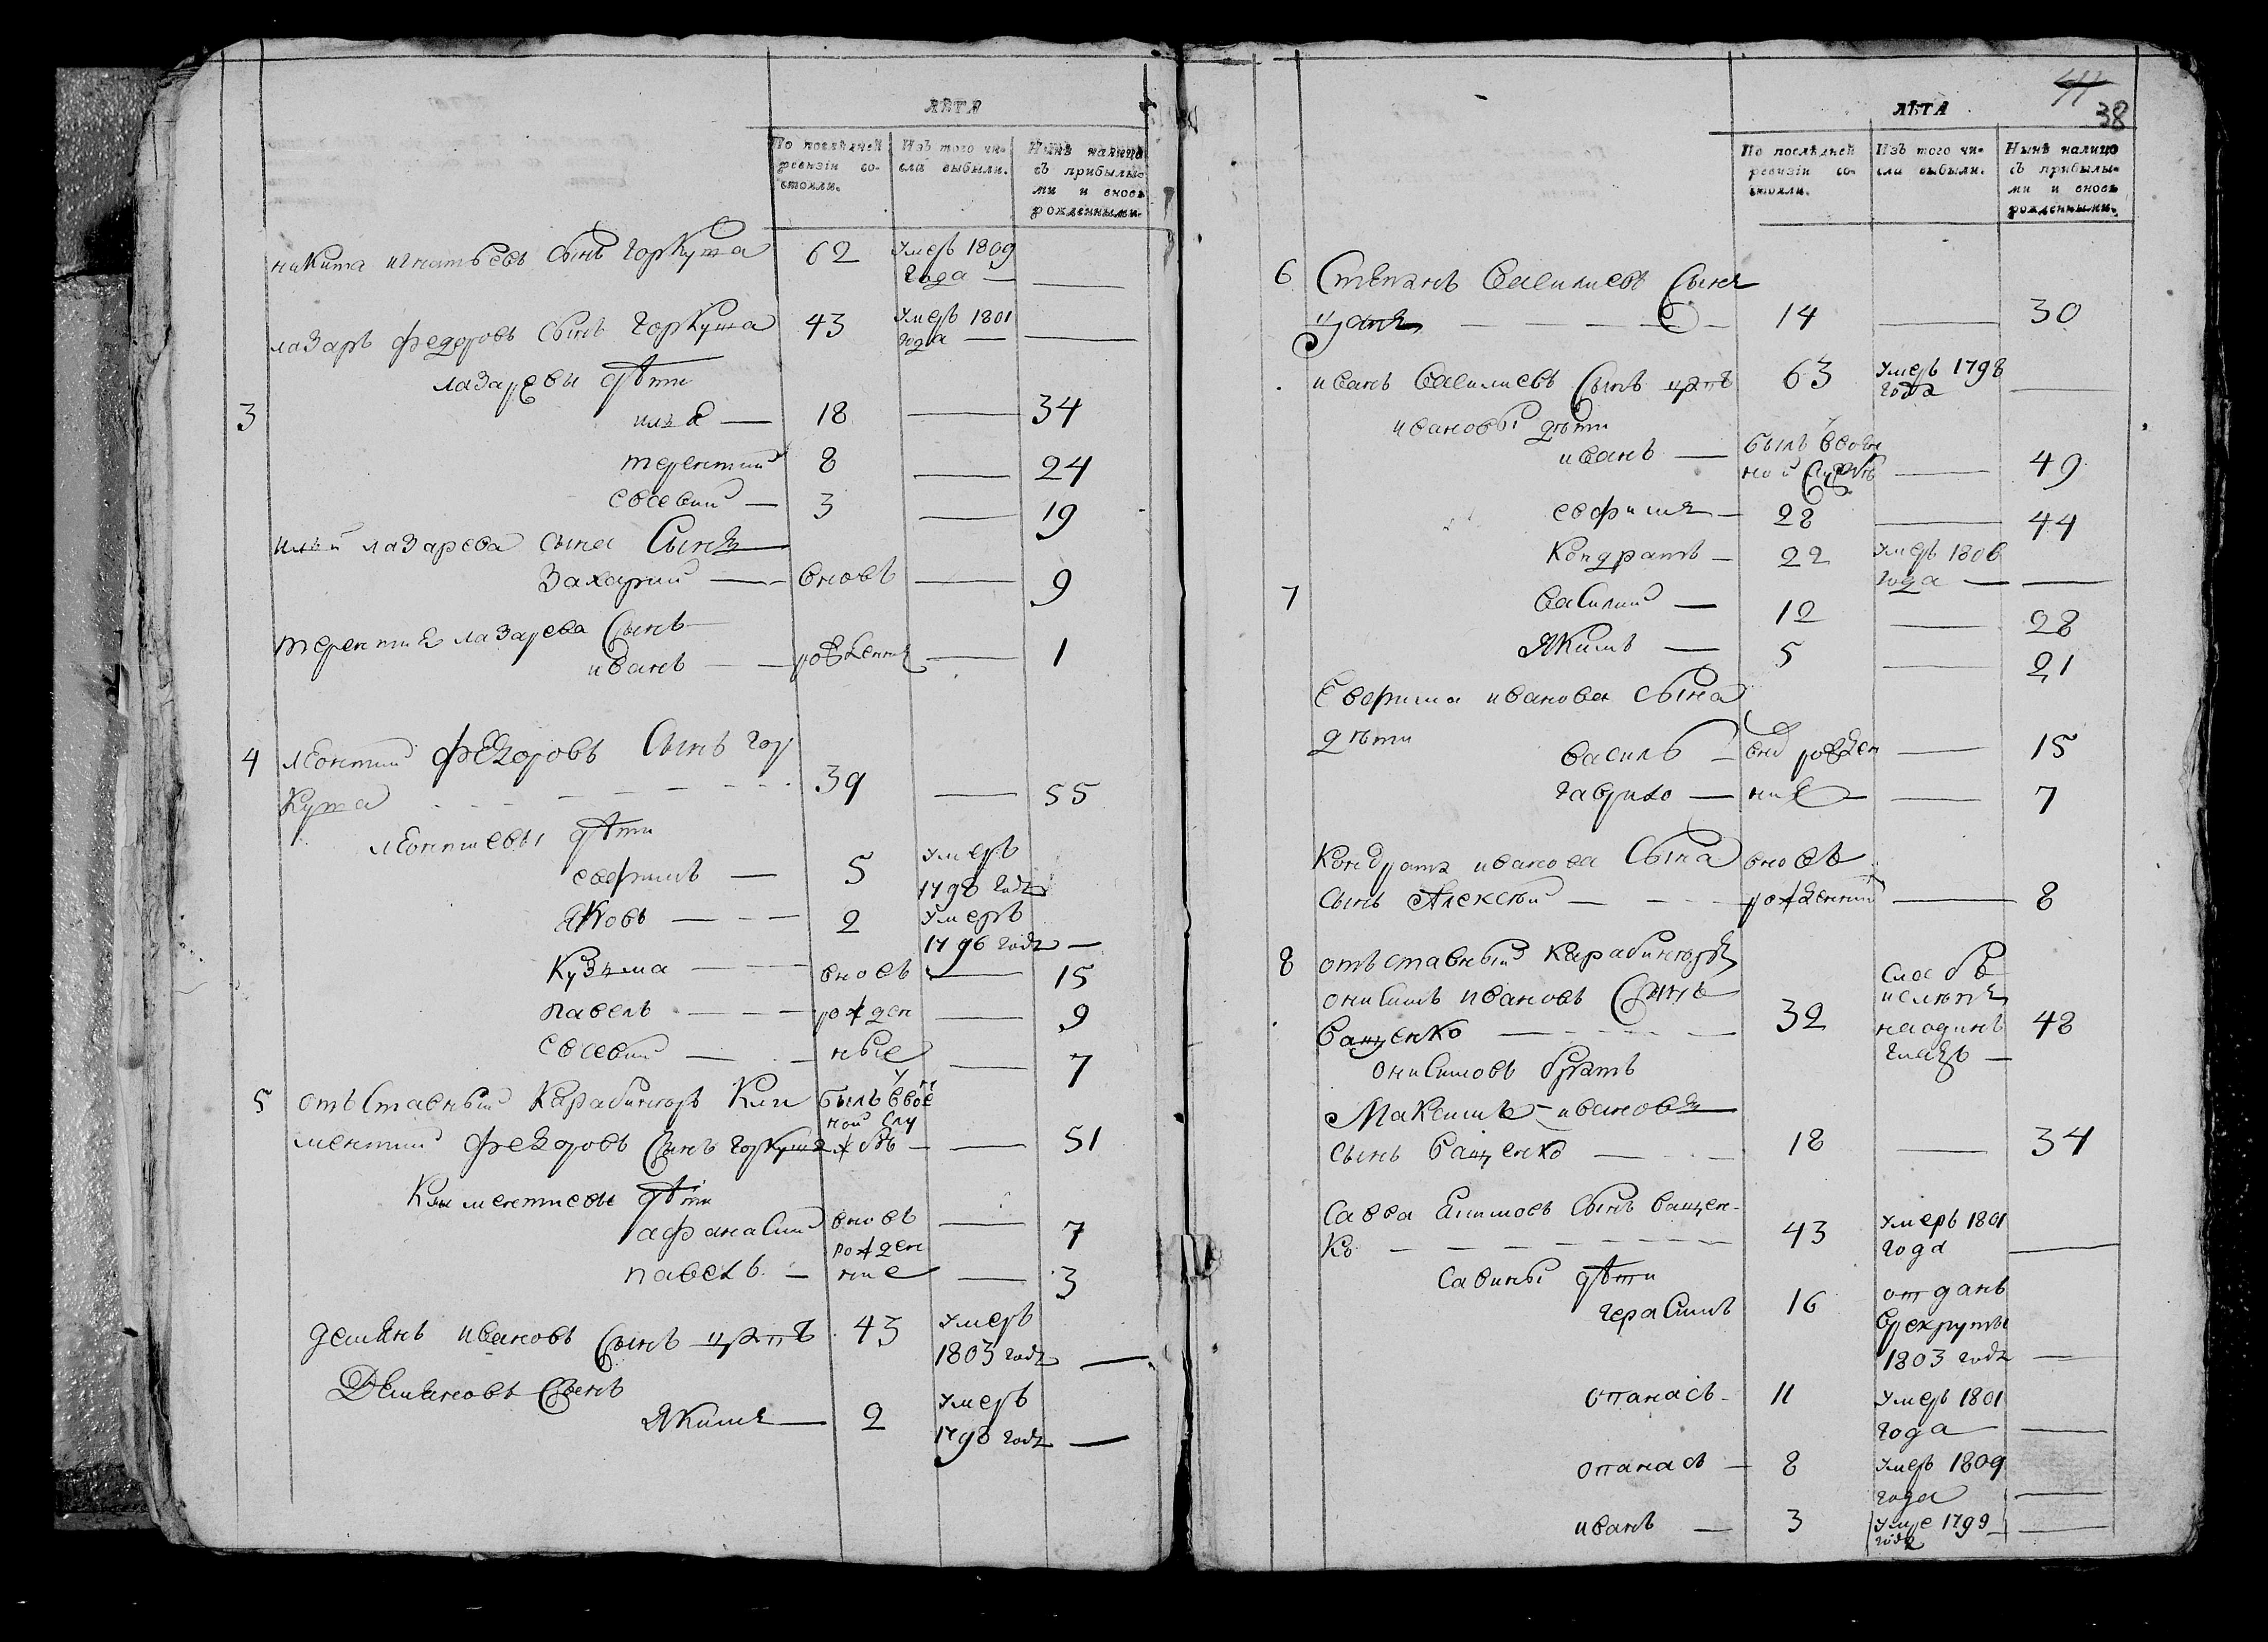 ЛѢТА
По послѣдней ревизіи со- стояли.
Изъ того чи- сла выбыли.
Нынѣ налицо съ прибылы- ми и вновь рожденными.
никита игнатьевъ сынъ горкуша 62 умеръ 1809 года —
лазаръ федоровъ сынъ горкуша 43 умеръ 1801 года —
лазаревы дѣти
3 илья — 18 — 34
терентий 8 — 24
евсевий — 3 — 19
ильи лазарева сына сынъ
Захарий — вновь — 9
терентия лазарева сынъ
иванъ — рожденъ — 1
4 леонтий федоровъ сынъ гор
куша 39 — 55
леонтиевы дѣти
евфимъ — 5 умеръ 1798 года
яковъ — 2 умеръ 1796 года —
кузьма — вновь — 15
павелъ — рожден — 9
евсевий — ные — 7
5 отъставный карабинеръ Кли былъ ввое
ментий федоровъ сынъ горкуша ной службѣ — 51
Климентиевы дѣти
афанасий вновь — 7
рожден
павелъ — ние — 3
демянъ ивановъ сынъ цапъ 43 умеръ 1803 года —
Демяновъ сынъ
якимъ — 2 умеръ 1798 года —
44
38
ЛѢТА
По послѣдней ревизіи со- стояли.
Изъ того чи- сла выбыли.
Нынѣ налицо съ прибылы- ми и вновь рожденными.
6 Степанъ василиевъ сынъ
цапъ — 14 — 30
иванъ василиевъ сынъ цапъ 63 умеръ 1798 года —
ивановы дѣти
иванъ — былъ ввоен ной службѣ — 49
евфимъ — 28 — 44
Кондратъ — 22 умеръ 1806 года —
7 василий — 12 — 28
якимъ — 5 — 21
Евфима иванова сына
дѣти
василь — вно рожден — 15
гаврило — ние — 7
Кондрата иванова сына вновь
сынъ Алексѣй — рожденний — 8
8 отъставный карабинеръ
онисимъ ивановъ сынъ
ващенко — 32 слабъ ислѣпъ наодинъ глазъ — 48
онисимовъ братъ
Максимъ ивановъ
сынъ ващенко — 18 — 34
Савва Якимовъ сынъ ващен-
ко — 43 умеръ 1801 года —
савины дѣти
герасимъ 16 отданъ врекруты 1803 года —
опанасъ — 11 умеръ 1801 года —
опанасъ — 8 умеръ 1809 года —
иванъ — 3 умре 1799 года —